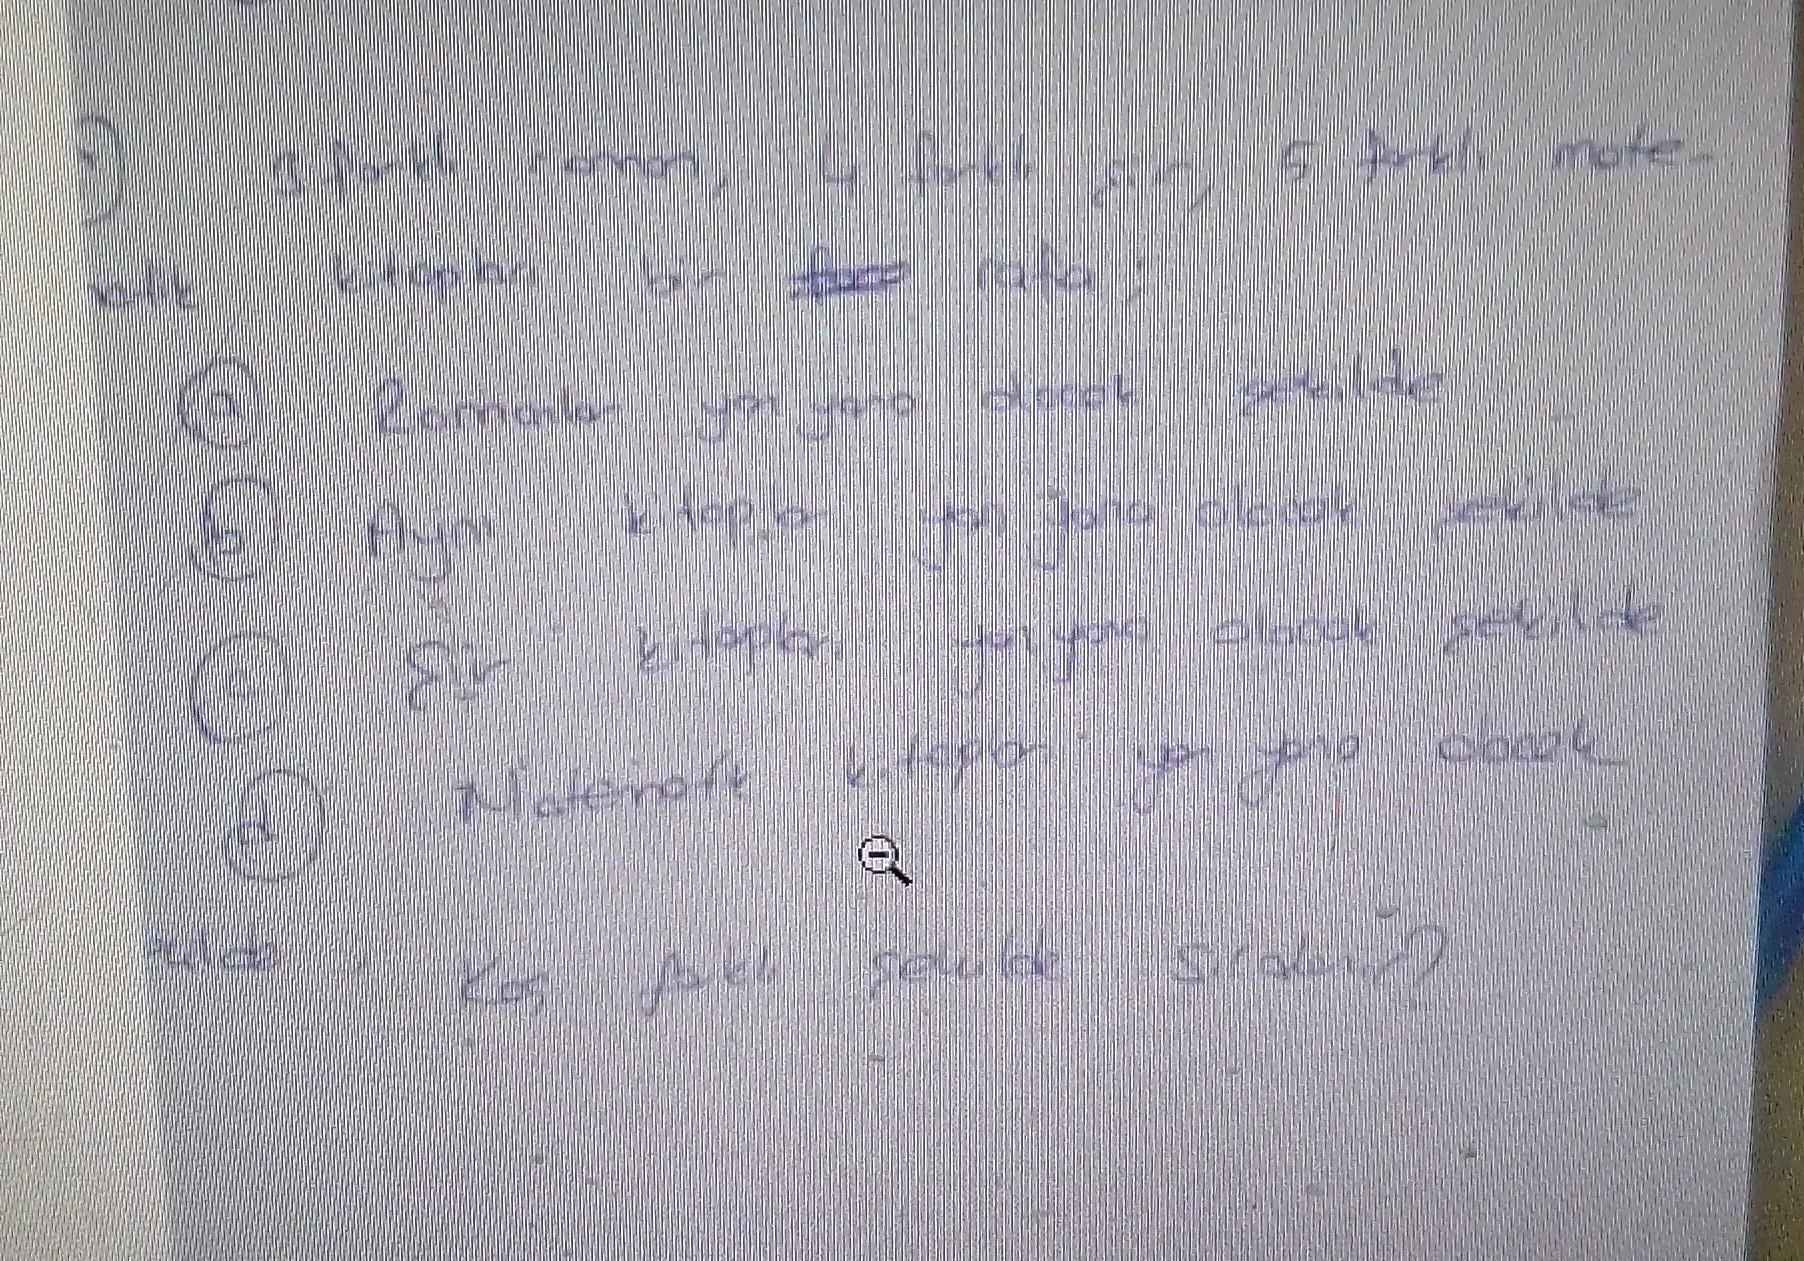 3 farklı roman, 4 farklı şiir, 5 farklı mate-
matik kitapları bir rafa;
a Romanlar yan yana olacak şekilde
b Aynı kitaplar yan yana olacak şekilde
c Şiir kitapları yan yana olacak şekilde
d Matematik kitapları yan yana olacak
şekilde Kaç farklı şekilde sıralanır?